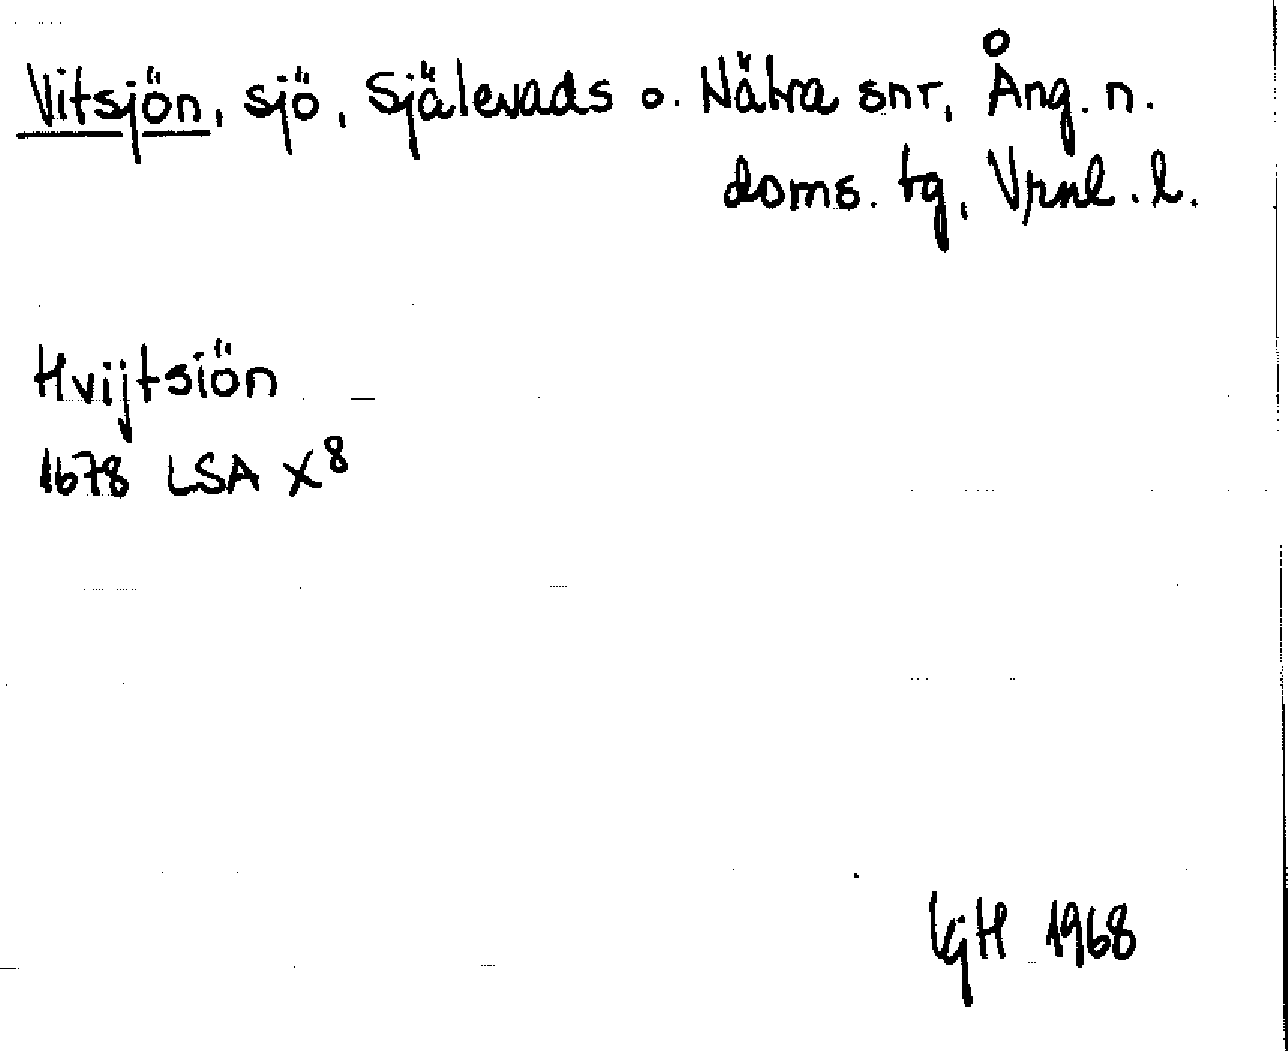 Vitsjön, sjö, Själevads o. Nätra snr, Ång. n.
doms. tg, Vrnl. l.
Hvijtsiön
1678 LSA X8
KjH 1968